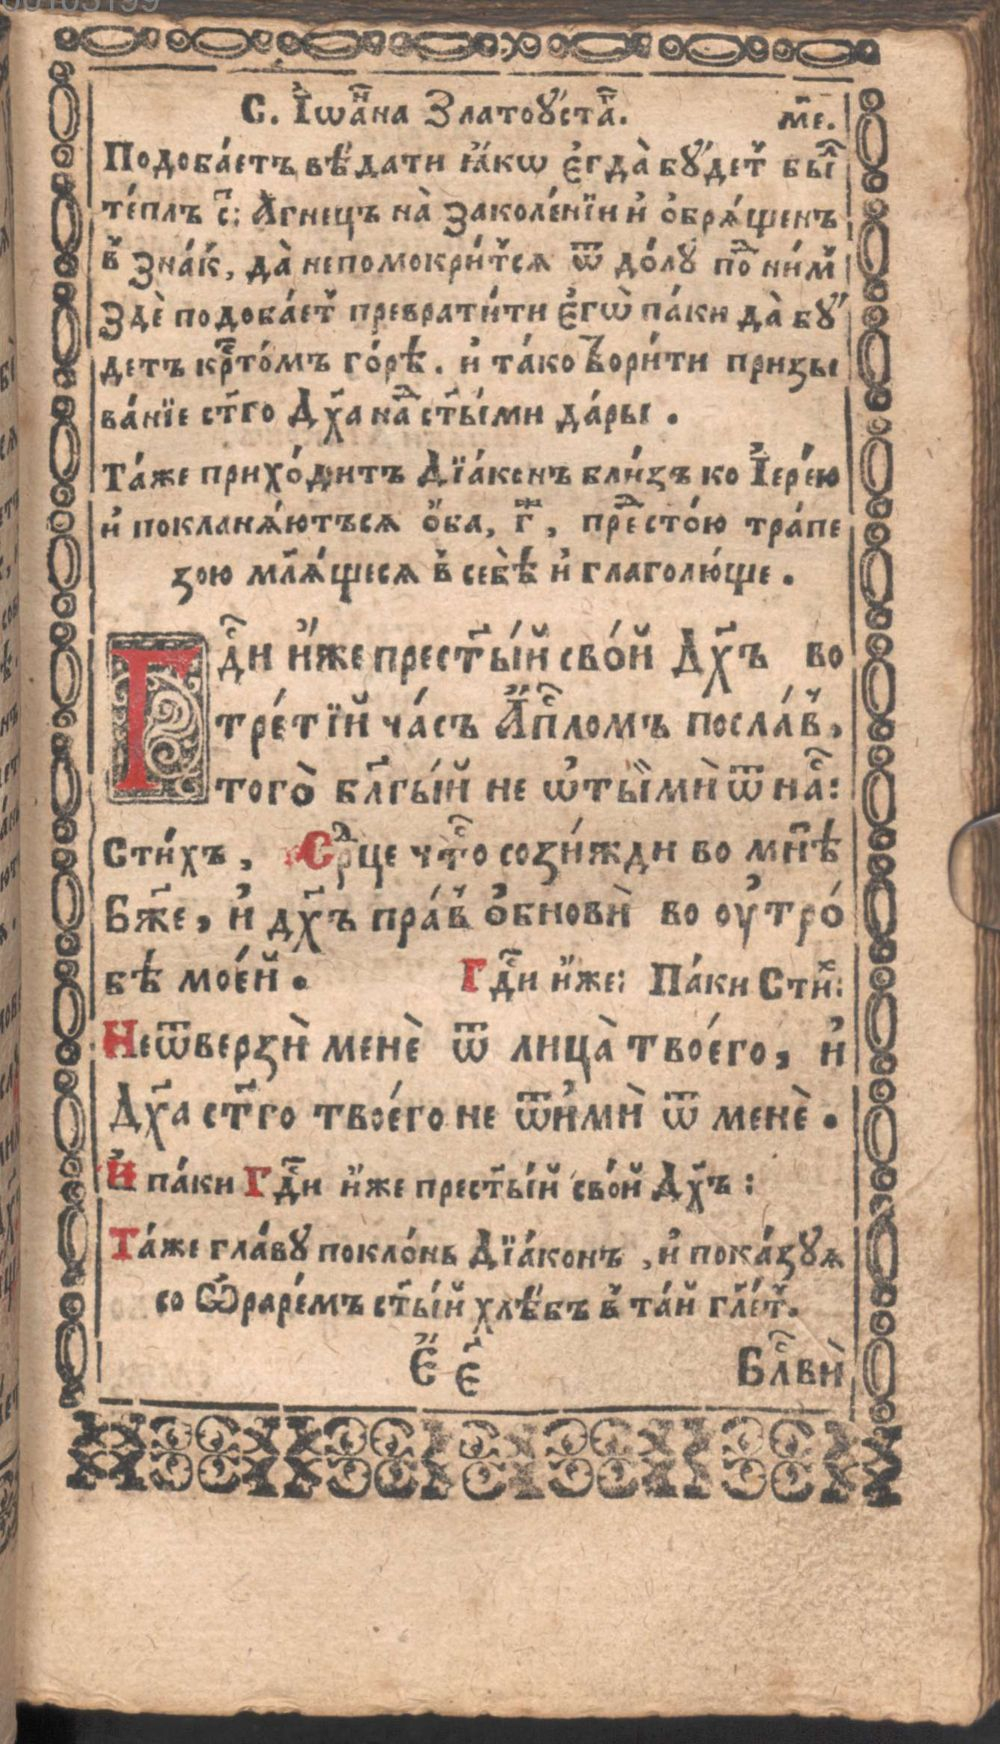 00103199
С. І҆ѡа́нⷩ҇а Златоꙋ́стаⷢ҇. м҃е.
Подоба́етъ вѣ́дати ꙗ҆́кѡ є҆гда̀ бꙋ́детⷮ бы́
те́плъ с҃: А҆гнецъ на̀ заколе́нїи и҆ ѻ҆брѧ́щенъ
в̾ зна́к̾, да̀ непомокри́т̾сѧ ѿ до́лꙋ поⷣ ни́м̾
Здѐ подоба́ет̾ преврати́ти є҆гѡ̀ па́ки да̀ бꙋ́
детъ крⷭ҇то́мъ го́рѣ. и҆ та́ко твори́ти призы
ва́нїе ст҃го Дх҃а наⷣ ст҃ы́ми да́ры.
Та́же прихо́дитъ Дїа́конъ бли́зъ ко І҆ере́ю
и҆ покланѧ́ютъсѧ ѻ҆́ба, г҃, преⷣсто́ю тра́пе
зою мл҃ѧ́щесѧ в̾ себѣ̀ и҆ глаголю́ще.
Гдⷭ҇и и҆́же прест҃ы́й сво́й Дх҃ъ во
тре́тїй ча́съ А҆пⷭ҇ломъ посла́в̾,
того̀ бл҃гы́й не ѡ҆ты́мѝ ѿ наⷭ҇:
Сти́хъ, Срⷣце чⷭ҇то сози́жди во мн҃ѣ
Бж҃е, и҆ дх҃ъ пра́в̾ ѻ҆бновѝ во оу҆тро́
бѣ мое́й. Гдⷭ҇и и҆́же: Па́ки Стиⷯ:
Неѿверзѝ менѐ ѿ лица̀ твоє́го, и҆
Дх҃а ст҃го твоє́го не ѿи҆мѝ ѿ менѐ.
И҆ па́ки Гдⷭ҇и и҆́же прест҃ы́й сво́й Дх҃ъ:
Та́же гла́вꙋ покло́нь Дїа́конъ, и҆ пока́зꙋѧ
со Ѡ҆раре́мъ ст҃ы́й хлѣ́бъ в̾ та́й гл҃е́т̾.
Є҆ є҆ Блⷭ҇вѝ